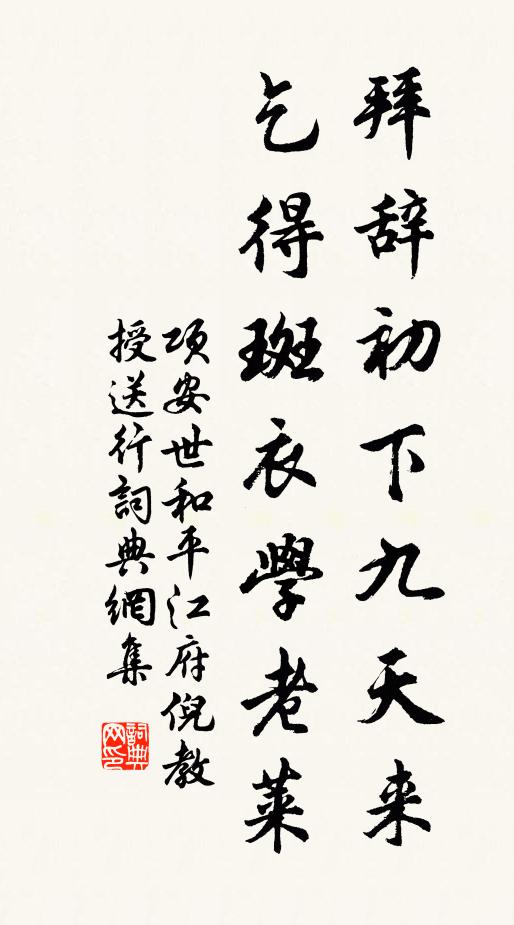 拜辞初下九天来
乞得斑衣學老萊
项安世和平江府倪教
授送行詞典網集
詞典
网印